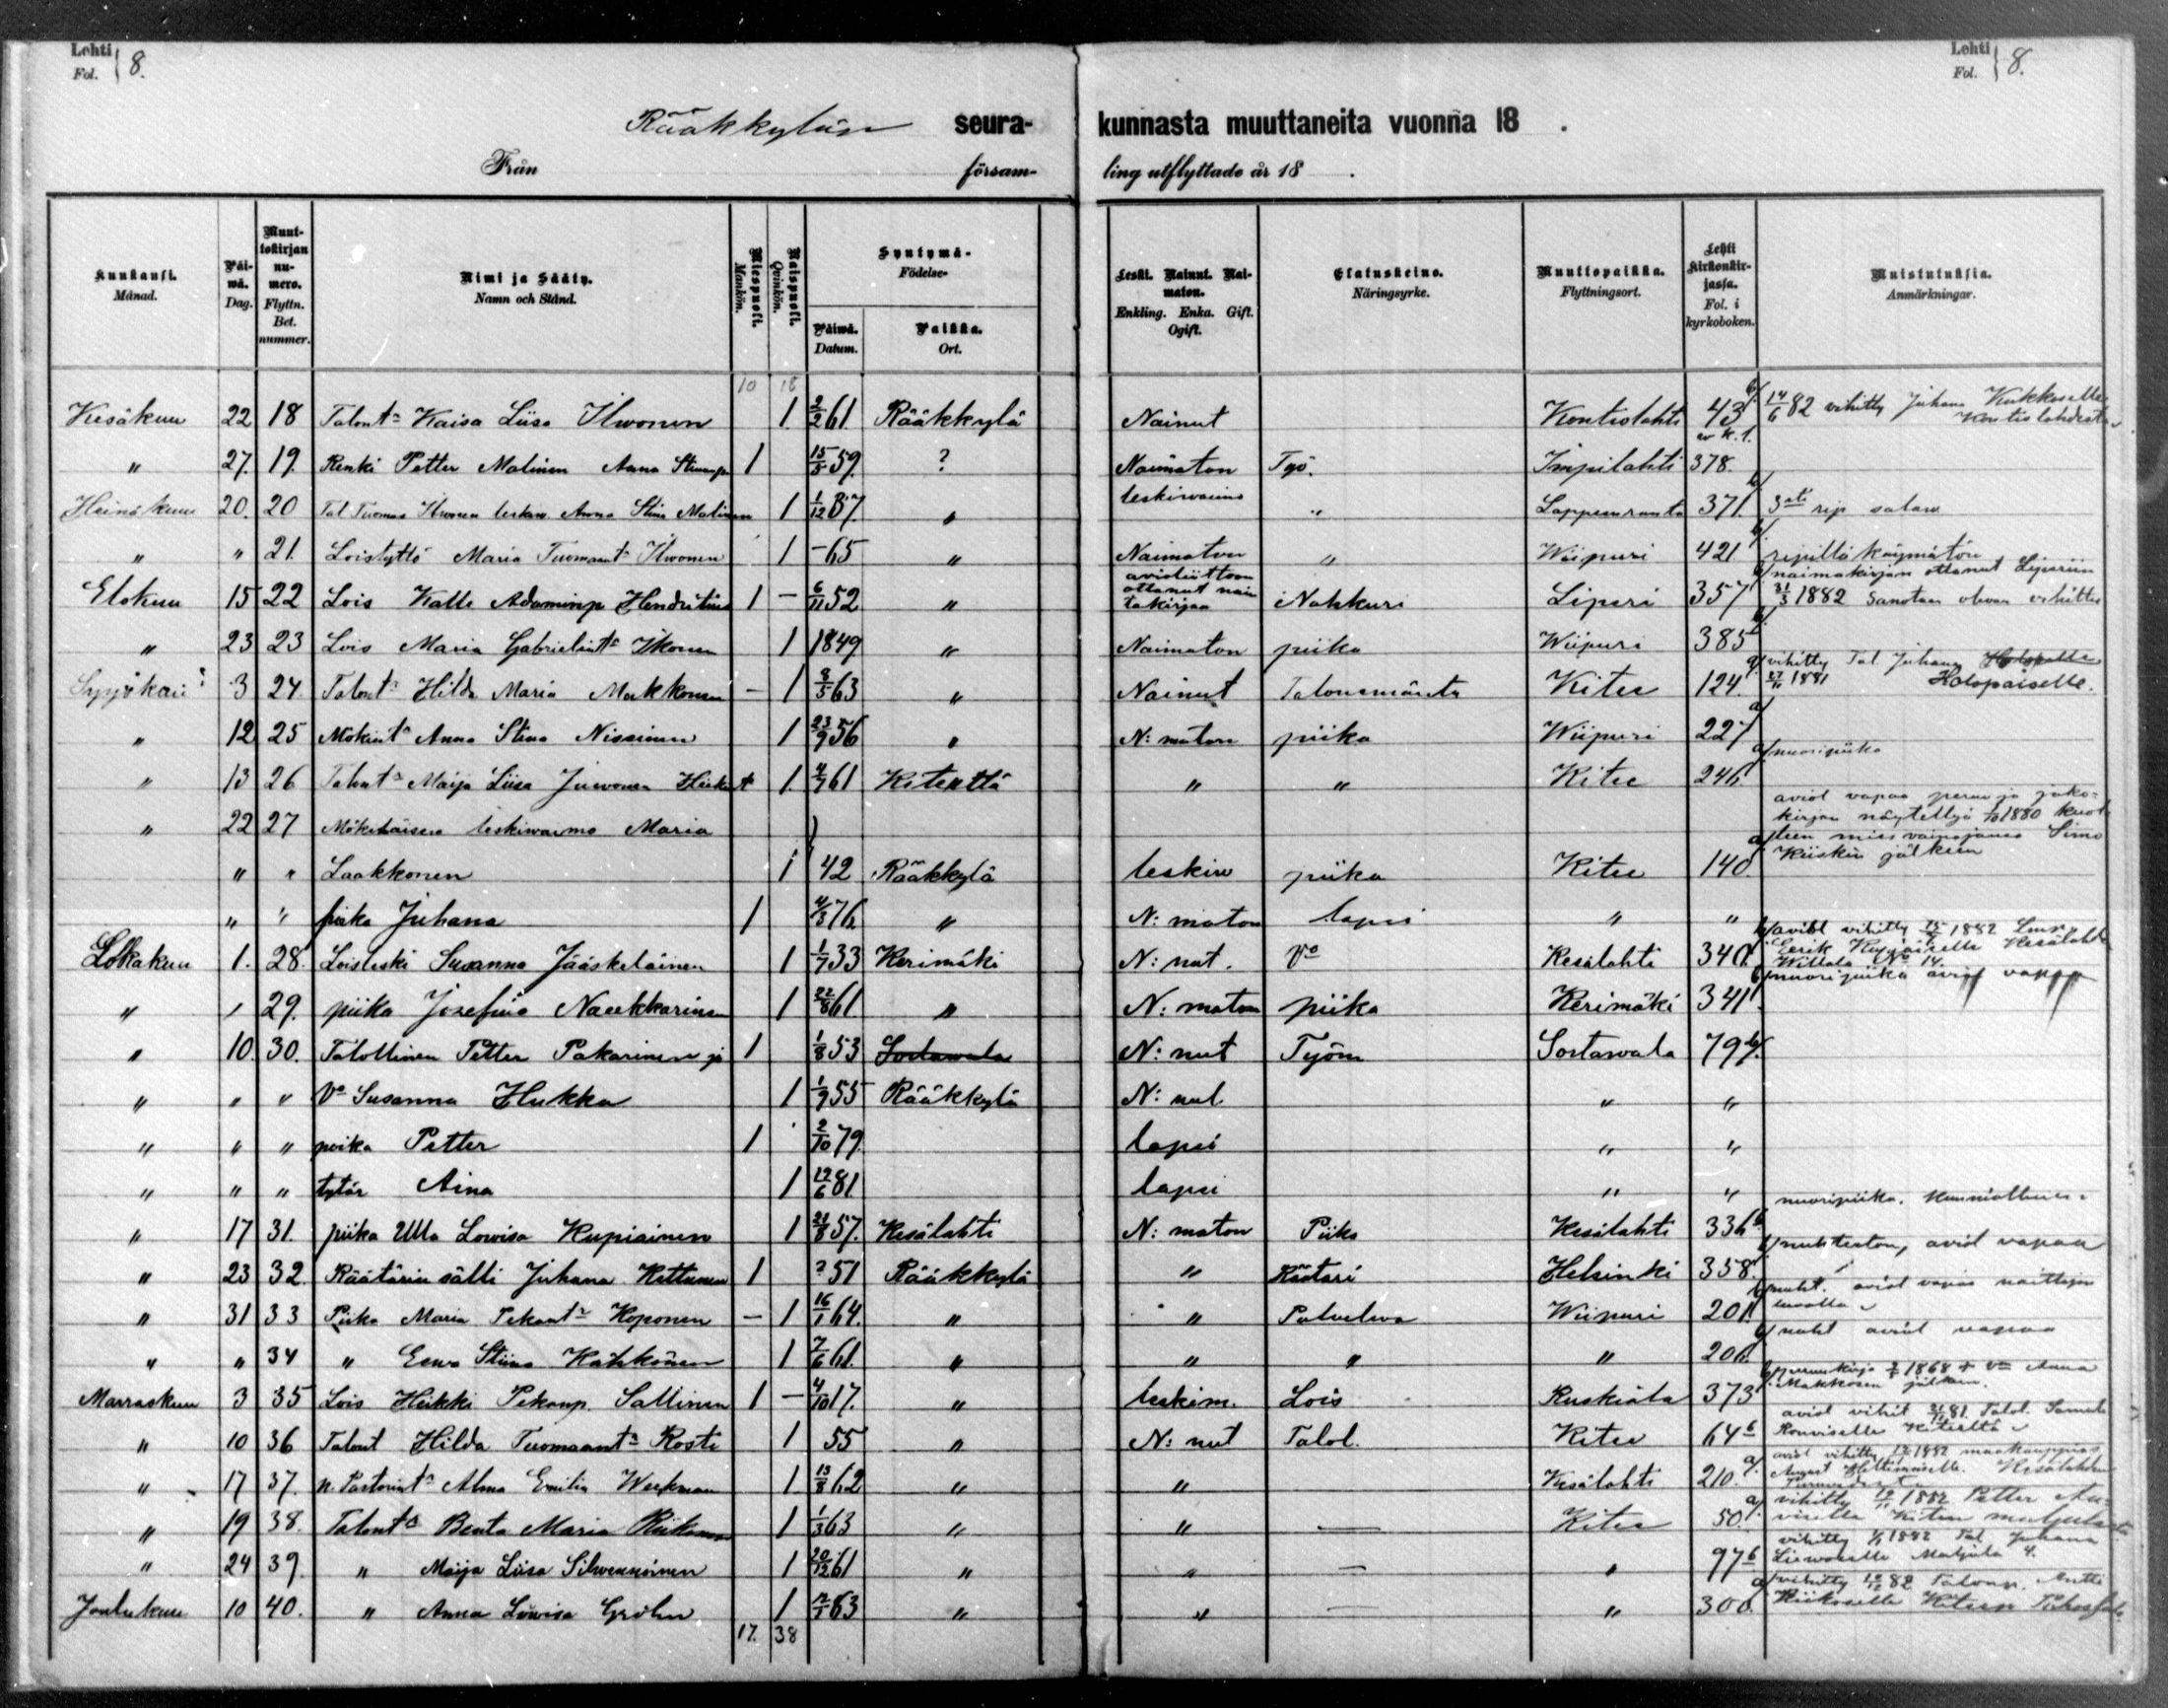 Lehti Fol. 8.
Lehti Fol. 8.
Rääkkylän seura- kunnasta muuttaneita vuonna 18 .
Från försam- ling utflyttade år 18 .
Kuukausi. Månad.
Päi-wä. Dag.
Muut-tokirjan nu-mero. Flyttn. Bet. nummer.
Nimi ja Sääty. Namn och Stånd.
Miespuoli. Mankön.
Naispuoli. Qvinkön.
Syntymä- Födelse-
Päiwä. Datum.
Paikka. Ort.
Leski. Nainut. Nai-maton. Enkling. Enka. Gift. Ogift.
Elatuskeino. Näringsyrke.
Muuttopaikka. Flyttningsort.
Lehti kirkonkir-jassa. Fol. i kyrkoboken.
Muistutuksia. Anmärkningar.
10 18
Kesäkuu 22 18 Talont:r Kaisa Liisa Ilwonen 1 2/2 61 Rääkkylä Nainut Kontiolahti 43 a/ 14/6 82 vihitty Juhana Kukkoselle Kontiolahdesta
" 27. 19. Renki Petter Malinen 1 15/5 59. ? Naimaton Työ. Impilahti 378.
Heinäkuu 20. 20 Tal Tuomas Ilwonen leskiw. Anna Stina Malinen 1 1/12 37. " leskiwaimo " Lappeenranta 371. 3sti rip salaw
" " 21. Loistyttö Maria Tuomaant:r Ilwonen 1 -65 " Naimaton " Wiipuri 421 b/ ripillä käymätön
Elokuu 15 22 Lois Kalle Adaminp Hendritius 1 - 6/11 52 " avioliittoon ottanut nain takirjan Nahkuri Liperi 357 b/ naimakirjan ottanut Liperiin 31/3 1882 sanotaan olevan vihitty
" 23 23 Lois Maria Gabrielint:r Ikonen 1 1849 " Naimaton piika Wiipuri 385
Syyskuu 3 24. Talont:r Hilda Maria Makkonen - 1 8/5 63 " Nainut Talonemäntä Kitee 124. a/ vihitty Tal. Juhana Holopaiselle. 27/11 1881
" 12 25 Mökint:r Anna Stina Nissinen 1 23/9 56 " N: maton piika Wiipuri 227
" 13 26 Talont:r Maija Liisa Juwonen 1. 4/7 61 Kiteeltä " " Kitee 246 a/ nuoripiika
" 22 27 Mökiläisen leskiwaimo Maria
" " Laakkonen 1 42 Rääkkylä leskiw piika Kitee 140 aviol vapaa perun ja jako-kirjan näytettyä 1880 a/ teen mies vainajansa Simo Kiiskin jälkeen
" " poika Juhana 1 4/3 76. " N: maton lapsi " "
Lokakuu 1. 28. Loisleski Susanna Jääskeläinen 1 1/7 33 Kerimäki N: nut. Vo Kesälahti 340. b/ aviol vihitty 1882 Eerik Kesälahti Willala No 14.
" " 29. piika Josefina Naukkarinen 1 22/8 61. " N: maton piika Kerimäki 341 b/ nuoripiika aviol vapaa
" 10. 30. Talollinen Petter Pakarinen ja 1 1/8 53 Sortawala N: nut Työm Sortawala 79 b/.
" " " Vo Susanna Hukka 1 1/9 55 Rääkkylä N: nut " "
" " " poika Petter 1 2/10 79. lapsi " "
" " " tytär Aina 1 12/6 81 lapsi " "
" 17 31. piika Ulla Lowisa Kupiainen 1 21/8 57. Kesälahti N: maton Piika Kesälahti 336 b nuoripiika.
" 23 32. Räätärin sälli Juhana Kettunen 1 ? 51 Rääkkylä " Räätäri Helsinki 358. b/ nuhteeton, aviol vapaa
" 31 33 Piika Maria Pekant:r Koponen - 1 16/1 64. " " Palvelwa Wiipuri 201. b/ nuht. aviol vapaa naittajan luvalla
" " 34 " Eewa Stiina Kähkönen 1 7/6 61. " " " " 201. b/ nuht aviol vapaa
Marraskuu 3 35 Lois Heikki Pekanp. Sallinen 1 - 4/10 17. " leskim. Lois Ruskiala 373 b/ perunkirja 1868 + Vo Anna Makkosen jälkeen.
" 10 36 Talont Hilda Tuomaant:r Rosti 1 55 " N: nut Talol. Kitee 64 b aviol vihit 81 Talol. Samuli Kiteeltä
" 17 37. n. Pastorint:r Alma Emilia Weckman 1 13/8 62 " " Kesälahti 210. a/ aviol vihitty 1882 maakauppias August Kesälahden
" 19 38. Talont:r Beata Maria Riikonen 1 1/3 63 " " — Kitee 50. a/ vihitty 1882 Petter Kiteen
" 24 39. " Maija Liisa Silwennoinen 1 20/12 61 " " — " 97 b vihitty 1882 Tal Juhana Matjula 4.
Joulukuu 10 40. " Anna Lowisa Gröhn 1 63 " " — " 300. a/ vihitty 82 Talonp. Antti Riikoselle Kiteen
17. 38